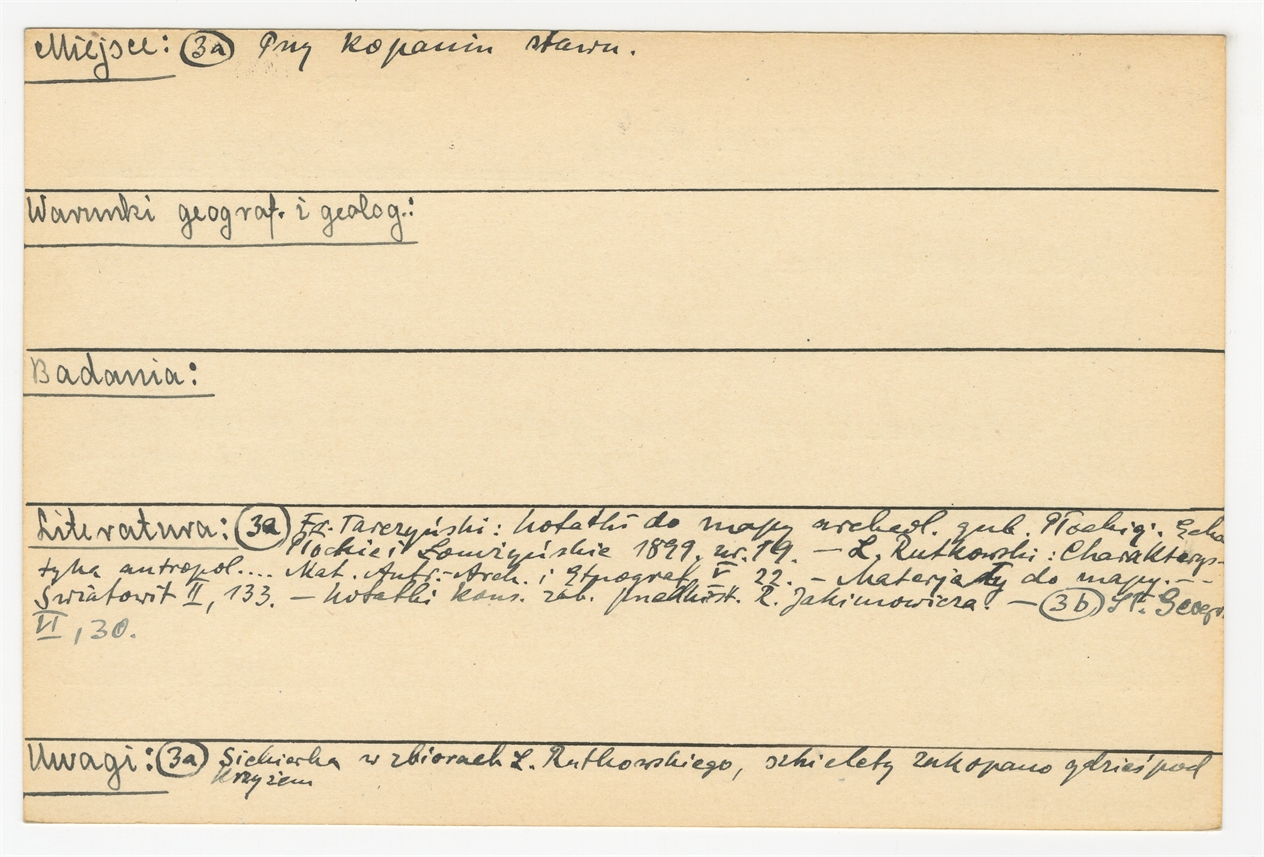 Miejsce: (3a) Przy kopaniu stawu.
Warunki geograf. i geolog.:
Badania:
Literatura: (3a) Fr. Tarczyński: Notatki do mapy archeol. gub. Płockiej. Echa
Płockie i Łomżyńskie 1899, nr. 19. — L. Rutkowski: Charakterys-
tyka antropol.... Mat. Antr.-Arch. i Etnograf. V 22. — Materjały do mapy. --
Światowit II, 133. — Notatki kons. zab. przedhist. R. Jakimowicza. — (3b) Sł. Geogr.
VI, 130.
Uwagi: (3a) Siekierka w zbiorach L. Rutkowskiego, szkielety zakopano gdzieś pod
krzyżem